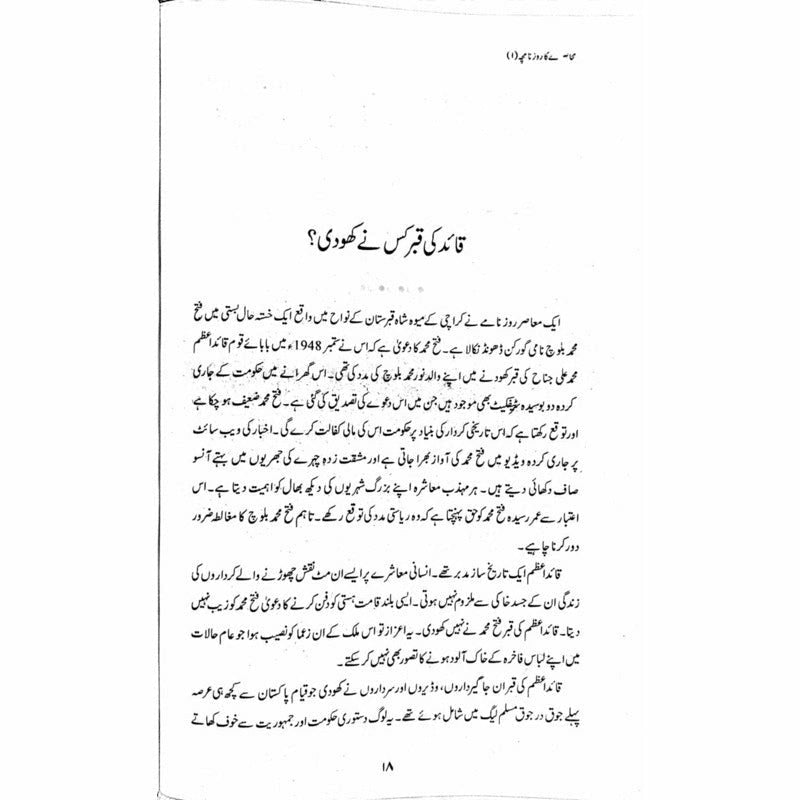 محاصرے کا روزنامچہ (۱)
قائد کی قبر کس نے کھودی؟
ایک معاصر روزنامے نے کراچی کے میوہ شاہ قبرستان کے نواح میں واقع ایک خستہ حال بستی میں فتح
محمد بلوچ نامی گورکن ڈھونڈ نکالا ہے۔ فتح محمد کا دعویٰ ہے کہ اس نے ستمبر 1948ء میں بابائے قوم قائداعظم
محمد علی جناح کی قبر کھودنے میں اپنے والد نور محمد بلوچ کی مدد کی تھی۔ اس گھرانے میں حکومت کے جاری
کردہ دو بوسیدہ سرٹیفکیٹ بھی موجود ہیں جن میں اس دعوے کی تصدیق کی گئی ہے۔ فتح محمد ضعیف ہو چکا ہے
اور توقع رکھتا ہے کہ اس تاریخی کردار کی بنیاد پر حکومت اس کی مالی کفالت کرے گی۔ اخبار کی ویب سائٹ
پر جاری کردہ ویڈیو میں فتح محمد کی آواز بھرا جاتی ہے اور مشقت زدہ چہرے کی جھریوں میں بہتے آنسو
صاف دکھائی دیتے ہیں۔ ہر مہذب معاشرہ اپنے بزرگ شہریوں کی دیکھ بھال کو اہمیت دیتا ہے۔ اس
اعتبار سے عمر رسیدہ فتح محمد کو حق پہنچتا ہے کہ وہ ریاستی مدد کی توقع رکھے۔ تاہم فتح محمد بلوچ کا مغالطہ ضرور
دور کرنا چاہیے۔
قائداعظم ایک تاریخ ساز مدبر تھے۔ انسانی معاشرے پر ایسے ان مٹ نقش چھوڑنے والے کرداروں کی
زندگی ان کے جسد خاکی سے ملزوم نہیں ہوتی۔ ایسی بلند قامت ہستی کو دفن کرنے کا دعویٰ فتح محمد کو زیب نہیں
دیتا۔ قائداعظم کی قبر فتح محمد نے نہیں کھودی۔ یہ اعزاز تو اس ملک کے ان زعما کو نصیب ہوا جو عام حالات
میں اپنے لباس فاخرہ کے خاک آلود ہونے کا تصور بھی نہیں کر سکتے۔
قائداعظم کی قبر ان جاگیرداروں، وڈیروں اور سرداروں نے کھودی جو قیام پاکستان سے کچھ ہی عرصہ
پہلے جوق در جوق مسلم لیگ میں شامل ہوئے تھے۔ یہ لوگ دستوری حکومت اور جمہوریت سے خوف کھاتے
۱۸